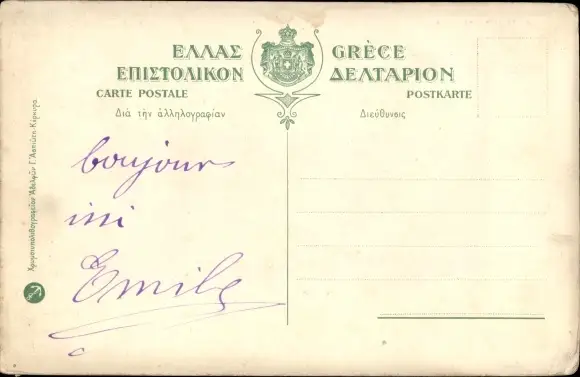 ΕΛΛΑΣ GRÈCE
ΕΠΙΣΤΟΛΙΚΟΝ ΔΕΛΤΑΡΙΟΝ
CARTE POSTALE POSTKARTE
Διὰ τὴν ἀλληλογραφίαν Διεύθυνσις
bonjour
Emile
Χρωμοτυπολιθογραφεῖον Ἀδελφῶν Γ. Ἀσπιώτη-Κέρκυρα